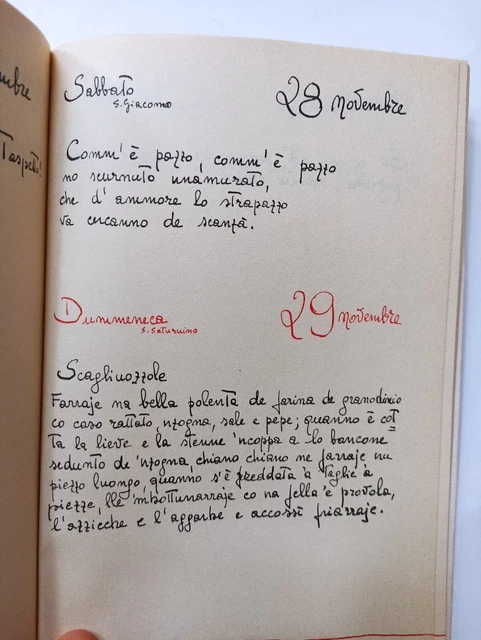 mbre
Taspetto!
Sabbato 28 Novembre
S. Giacomo
Comm' è pazzo, comm' è pazzo
no scurnuto unamurato,
che d' ammore lo strapazzo
va cercanno de scanzà.
Dummeneca 29 Novembre
S. Saturnino
Scagliuozzole
Farraje na bella polenta de farina de granodinio
co caso rattato, nzogna, sale e pepe; quanno è cot
ta la lieve e la stienne 'ncoppa a lo bancone
sedunto de 'nzogna, chiano chiano ne farraje nu
piezzo luongo, quanno s'è freddata à taglie à
piezze, lle 'mbottunarraje co na fella 'e provola,
l'azziecche e l'aggarbe e accossì friarraje.